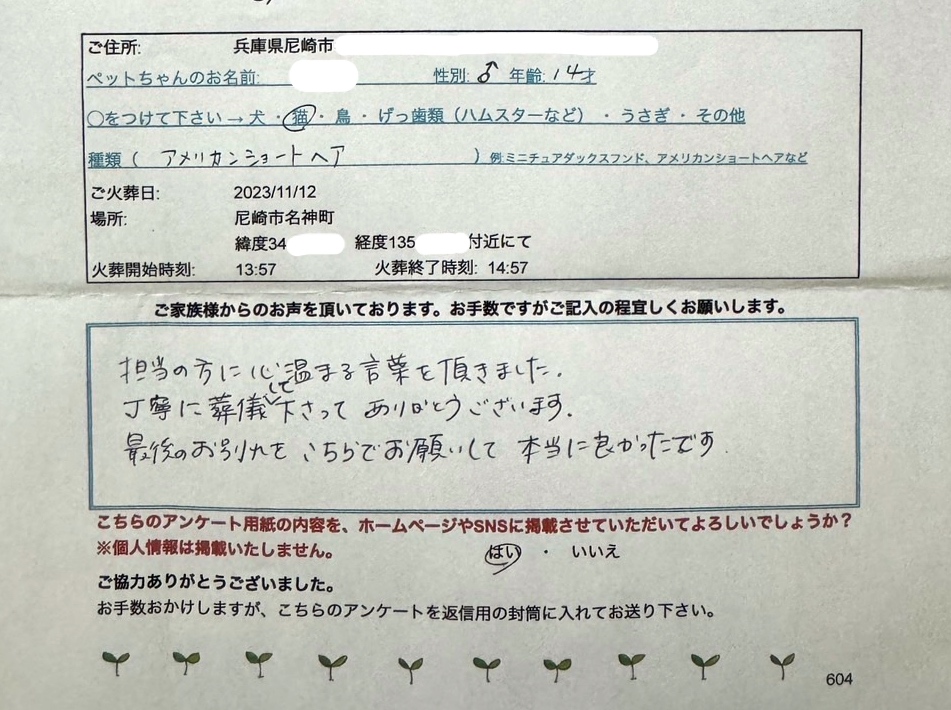 ご住所: 兵庫県尼崎市
ペットちゃんのお名前: 性別: ♂ 年齢: 14才
〇をつけて下さい → 犬 ・ 猫 ・ 鳥 ・ げっ歯類（ハムスターなど） ・ うさぎ ・ その他
種類（ アメリカンショートヘア ）例:ミニチュアダックスフンド、アメリカンショートヘアなど
ご火葬日: 2023/11/12
場所: 尼崎市名神町
緯度34 経度135 付近にて
火葬開始時刻: 13:57 火葬終了時刻: 14:57
ご家族様からのお声を頂いております。お手数ですがご記入の程宜しくお願いします。
担当の方に心温まる言葉を頂きました。
丁寧に葬儀して下さって ありがとうございます。
最後のお別れを こちらでお願いして 本当に良かったです.
こちらのアンケート用紙の内容を、ホームページやSNSに掲載させていただいてよろしいでしょうか？
※個人情報は掲載いたしません。 はい ・ いいえ
ご協力ありがとうございました。
お手数おかけしますが、こちらのアンケートを返信用の封筒に入れてお送り下さい。
604